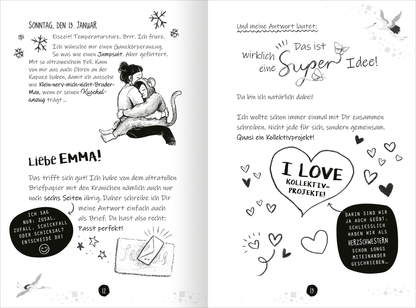 SONNTAG, DEN 13. JANUAR
Eiszeit! Temperatursturz. Brr. Ich friere.
Ich wünsche mir einen Ganzkörperanzug.
So was wie einen Jumpsuit. Aber gefüttert.
Mit so ultraweichem Fell. Kann
von mir aus auch Ohren an der
Kapuze haben, damit ich aussehe
wie Klein-nerv-mich-nicht-Bruder-
Max, wenn er seinen Kuschel-
anzug trägt ...
Liebe EMMA!
Das trifft sich gut! Ich habe von dem ultratollen
Briefpapier mit den Kranichen nämlich auch nur
noch sechs Seiten übrig. Daher schreibe ich Dir
meine Antwort einfach auch
als Brief. Du hast also recht:
Passt perfekt!
ICH SAG
NUR: ZUSAL.
ZUFALL, SCHICKFALL
ODER SCHICKSAL?
ENTSCHEIDE DU!
12
Und meine Antwort lautet:
Das ist
wirklich
eine Super Idee!
Da bin ich natürlich dabei!
Ich wollte schon immer einmal mit Dir zusammen
schreiben. Nicht jede für sich, sondern gemeinsam.
Quasi ein Kollektivprojekt!
I LOVE
KOLLEKTIV-
PROJEKTE!
DARIN SIND WIR
JA AUCH GEÜBT,
SCHLIESSLICH
HABEN WIR ALS
HERZSCHWESTERN
SCHON SONGS
MITEINANDER
GESCHRIEBEN...
13